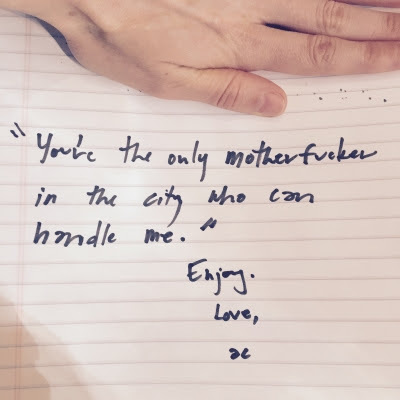 "You're the only motherfucker
in the city who can
handle me."
Enjoy.
Love,
ac